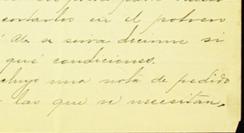 cortarlos en el potrero
Ud. se sirva decirme si
qué condiciones.
cluyo una nota de pedido
las que se necesitan,